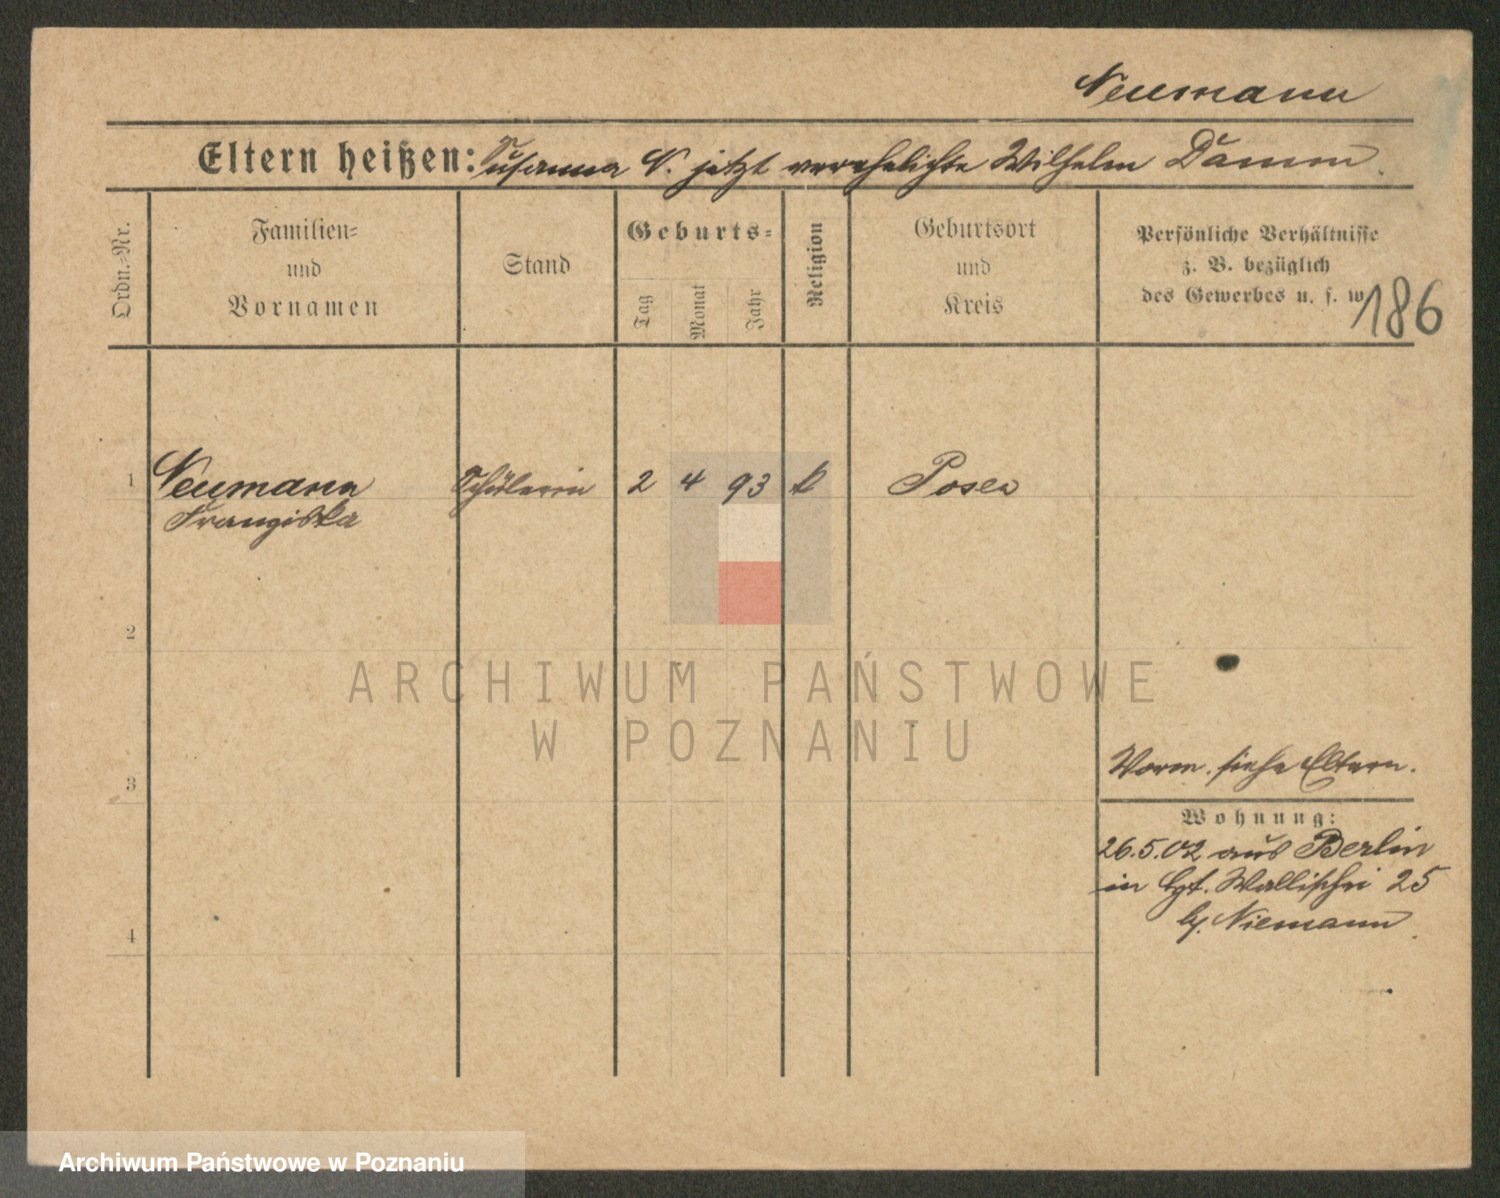 Neumann
Eltern heißen: Susanna N. jetzt verehelichte Wilhelm Damm
Ordn.-Nr.
Familien-
und
Vornamen
Stand
Geburts-
Tag
Monat
Jahr
Religion
Geburtsort
und
Kreis
Persönliche Verhältnisse
z. B. bezüglich
des Gewerbes u. s. w.
186
1 Neumann Schülerin 2 4 93 k Posen
Franziska
2
ARCHIWUM PAŃSTWOWE
W POZNANIU
3
Vorm. siehe Eltern.
Wohnung:
26.5.02 aus Berlin
in Wallischei 25
4
b/. Niemann
Archiwum Państwowe w Poznaniu